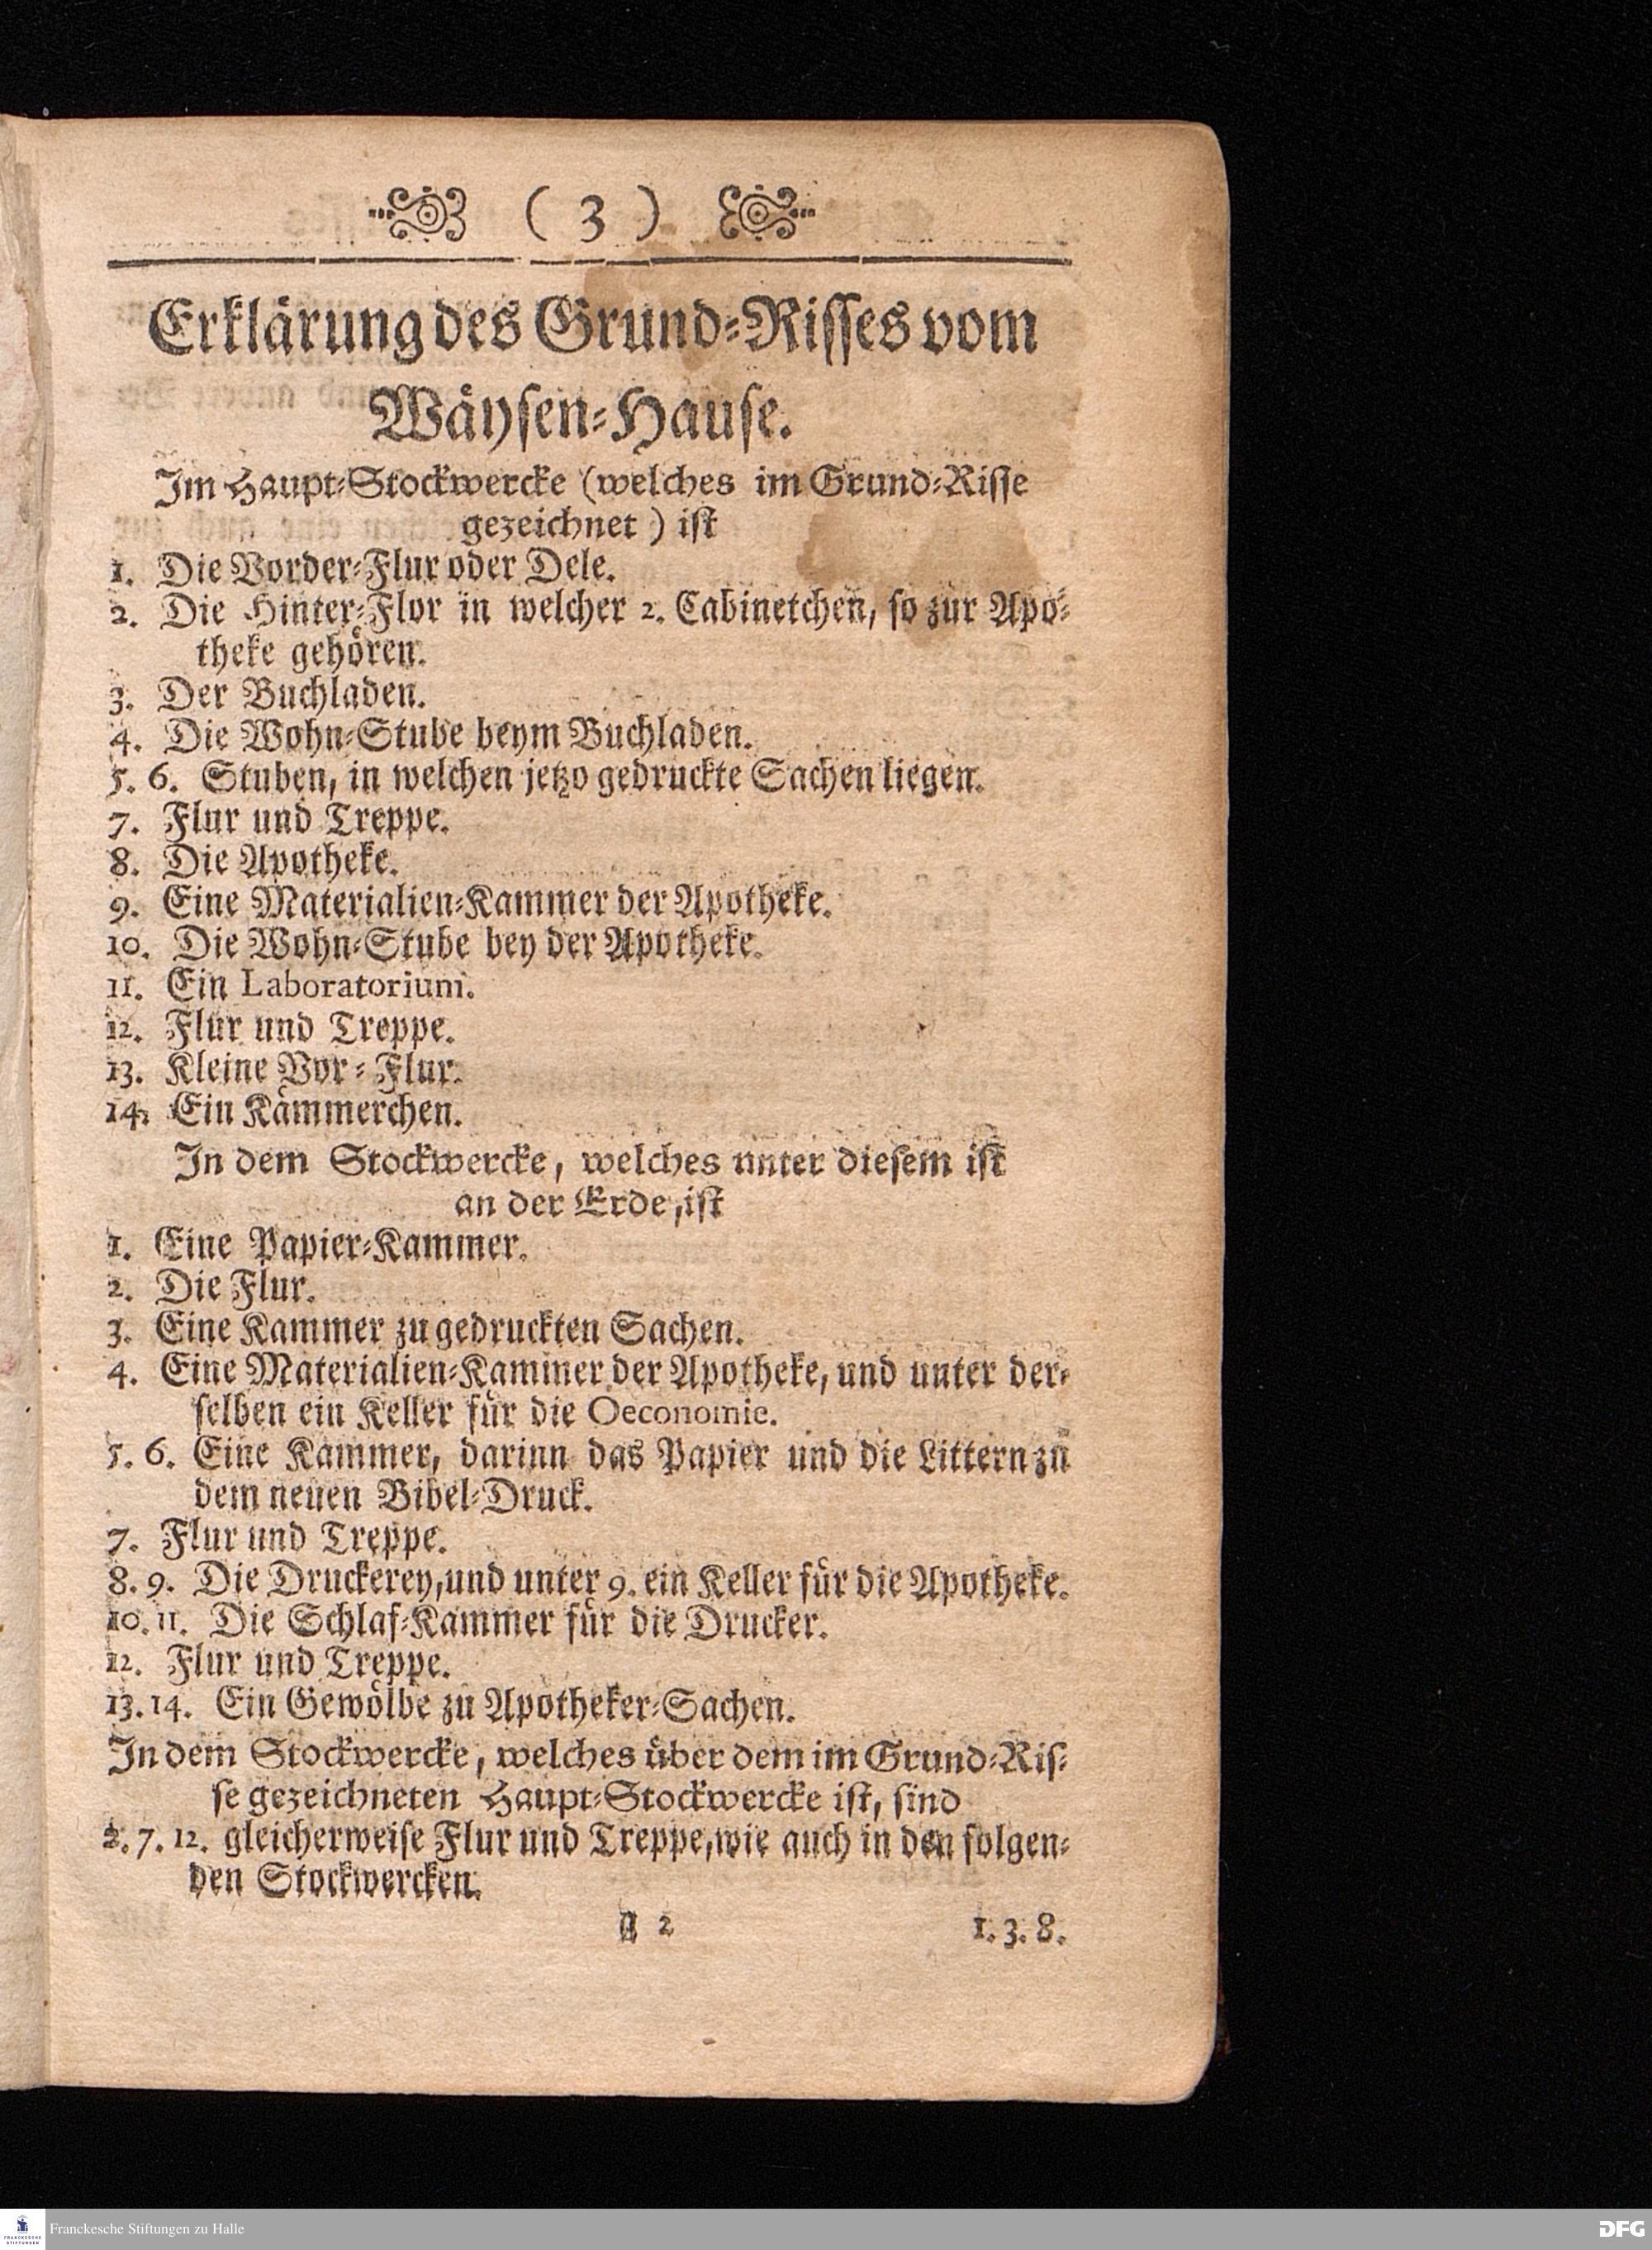 ( 3 )
Erklärung des Grund-Risses vom
Wäysen-Hause.
Im Haupt-Stockwercke (welches im Grund-Risse
gezeichnet ) ist
1. Die Vorder-Flur oder Dele.
2. Die Hinter-Flor in welcher 2. Cabinetchen, so zur Apo-
theke gehören.
3. Der Buchladen.
4. Die Wohn-Stube beym Buchladen.
5. 6. Stuben, in welchen jetzo gedruckte Sachen liegen.
7. Flur und Treppe.
8. Die Apotheke.
9. Eine Materialien-Kammer der Apotheke.
10. Die Wohn-Stube bey der Apotheke.
11. Ein Laboratorium.
12. Flur und Treppe.
13. Kleine Vor-Flur.
14. Ein Kämmerchen.
In dem Stockwercke, welches unter diesem ist
an der Erde, ist
1. Eine Papier-Kammer.
2. Die Flur.
3. Eine Kammer zu gedruckten Sachen.
4. Eine Materialien-Kammer der Apotheke, und unter der-
selben ein Keller für die Oeconomie.
5. 6. Eine Kammer, darinn das Papier und die Littern zu
dem neuen Bibel-Druck.
7. Flur und Treppe.
8. 9. Die Druckerey, und unter 9. ein Keller für die Apotheke.
10. 11. Die Schlaf-Kammer für die Drucker.
12. Flur und Treppe.
13. 14. Ein Gewölbe zu Apotheker-Sachen.
In dem Stockwercke, welches über dem im Grund-Ris-
se gezeichneten Haupt-Stockwercke ist, sind
2. 7. 12. gleicherweise Flur und Treppe, wie auch in den folgen-
den Stockwercken.
2 1. 3. 8.
Franckesche Stiftungen zu Halle
FRANCKESCHE
STIFTUNGEN
DFG